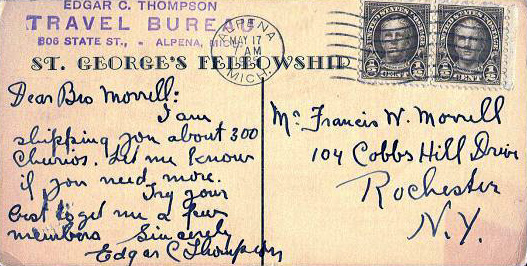 EDGAR C. THOMPSON
TRAVEL BUREAU
806 STATE ST., - ALPENA, MICH.
ALPENA
MAY 17
AM
MICH.
UNITED STATES POSTAGE
UNITED STATES POSTAGE
1/2 CENT 1/2
1/2 CENT 1/2
ST. GEORGE'S FELLOWSHIP
Dear Bro Morrell:
I am
shipping you about 300
Churios. Let me know
if you need more.
Try your
best to get me a few
members Sincerely
Edgar C Thompson
Mr Francis W. Morrell
104 Cobbs Hill Drive
Rochester
N.Y.